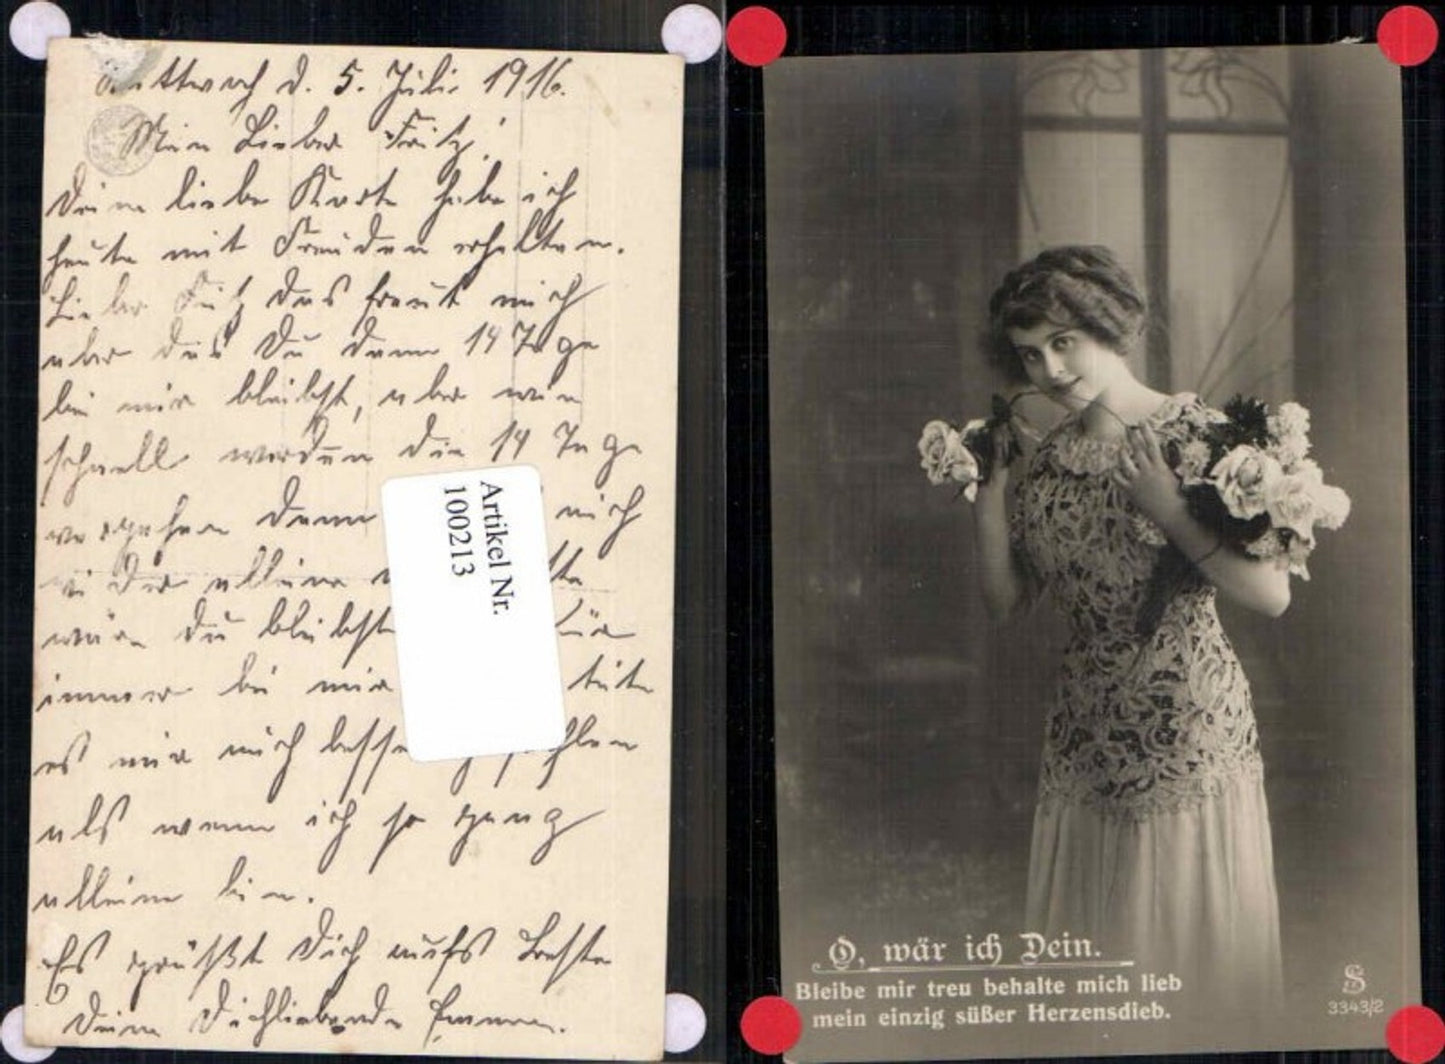 Mittwoch d. 5. Juli. 1916.
Mein Lieber Fritz!
Deine liebe Karte habe ich
heute mit Freuden erhalten.
Lieber Fritz das freut mich
aber das Du dann 14 Tage
bei mir bleibst, aber wie
schnell werden die 14 Tage
vergehen dann mich
wider alleine
wen Du bleibst für
immer bei mir täte
es mir auch besser gefahlen
als wenn ich so ganz
alleine bin.
Es grüßt Dich aufs Beste
Deine Dichliebende Emma.
Artikel Nr.
100213
O, wär ich Dein.
Bleibe mir treu behalte mich lieb
mein einzig süßer Herzensdieb.
S
3343/2